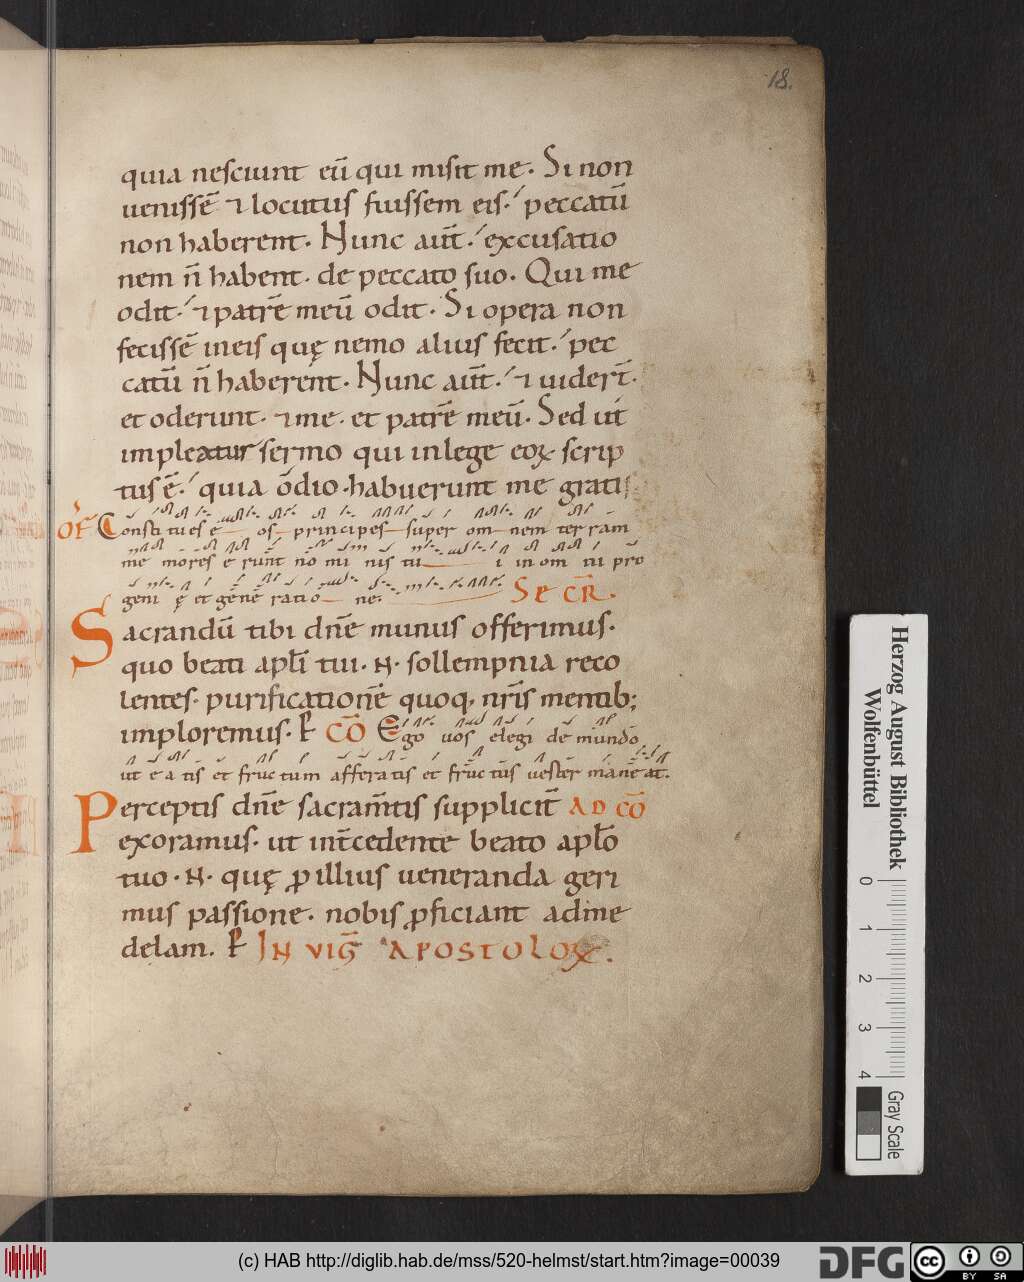 18.
quia nesciunt eū qui misit me. Si non
uenissē ⁊ locutus fuissem eis. peccatū
non haberent. Nunc aūt. excusatio
nem n̄ habent. de peccato suo. Qui me
odit. ⁊ patrē meū odit. Si opera non
fecissē in eis quę nemo alius fecit. pec
catū n̄ haberent. Nunc aūt. ⁊ uider̄t.
et oderunt. ⁊ me. et patrē meū. Sed ut
impleatur sermo qui in lege eoꝝ scrip
tus ē. quia ōdio habuerunt me gratis
OF Constitues eos principes super omnem terram
memores erunt nominis tui in omni pro
genie et generatione. SECR.
Sacrandū tibi dn̄e munus offerimus.
quo beati apl̄i tui .N. sollempnia reco
lentes. purificationē quoq, nr̄is mentib;
imploremus. P CŌ Ego uos elegi de mundo
ut eatis et fructum afferatis et fructus uester maneat.
Perceptis dn̄e sacram̄tis supplicit̄ AD CŌ
exoramus. ut int̄cedente beato apl̄o
tuo .N. quę ꝓ illius ueneranda geri
mus passione. nobis ꝓficiant ad me
delam. P IN VIḠ APOSTOLOꝜ.
Herzog August Bibliothek
Wolfenbüttel
0 1 2 3 4
Gray Scale
(c) HAB http://diglib.hab.de/mss/520-helmst/start.htm?image=00039
DFG
cc BY SA